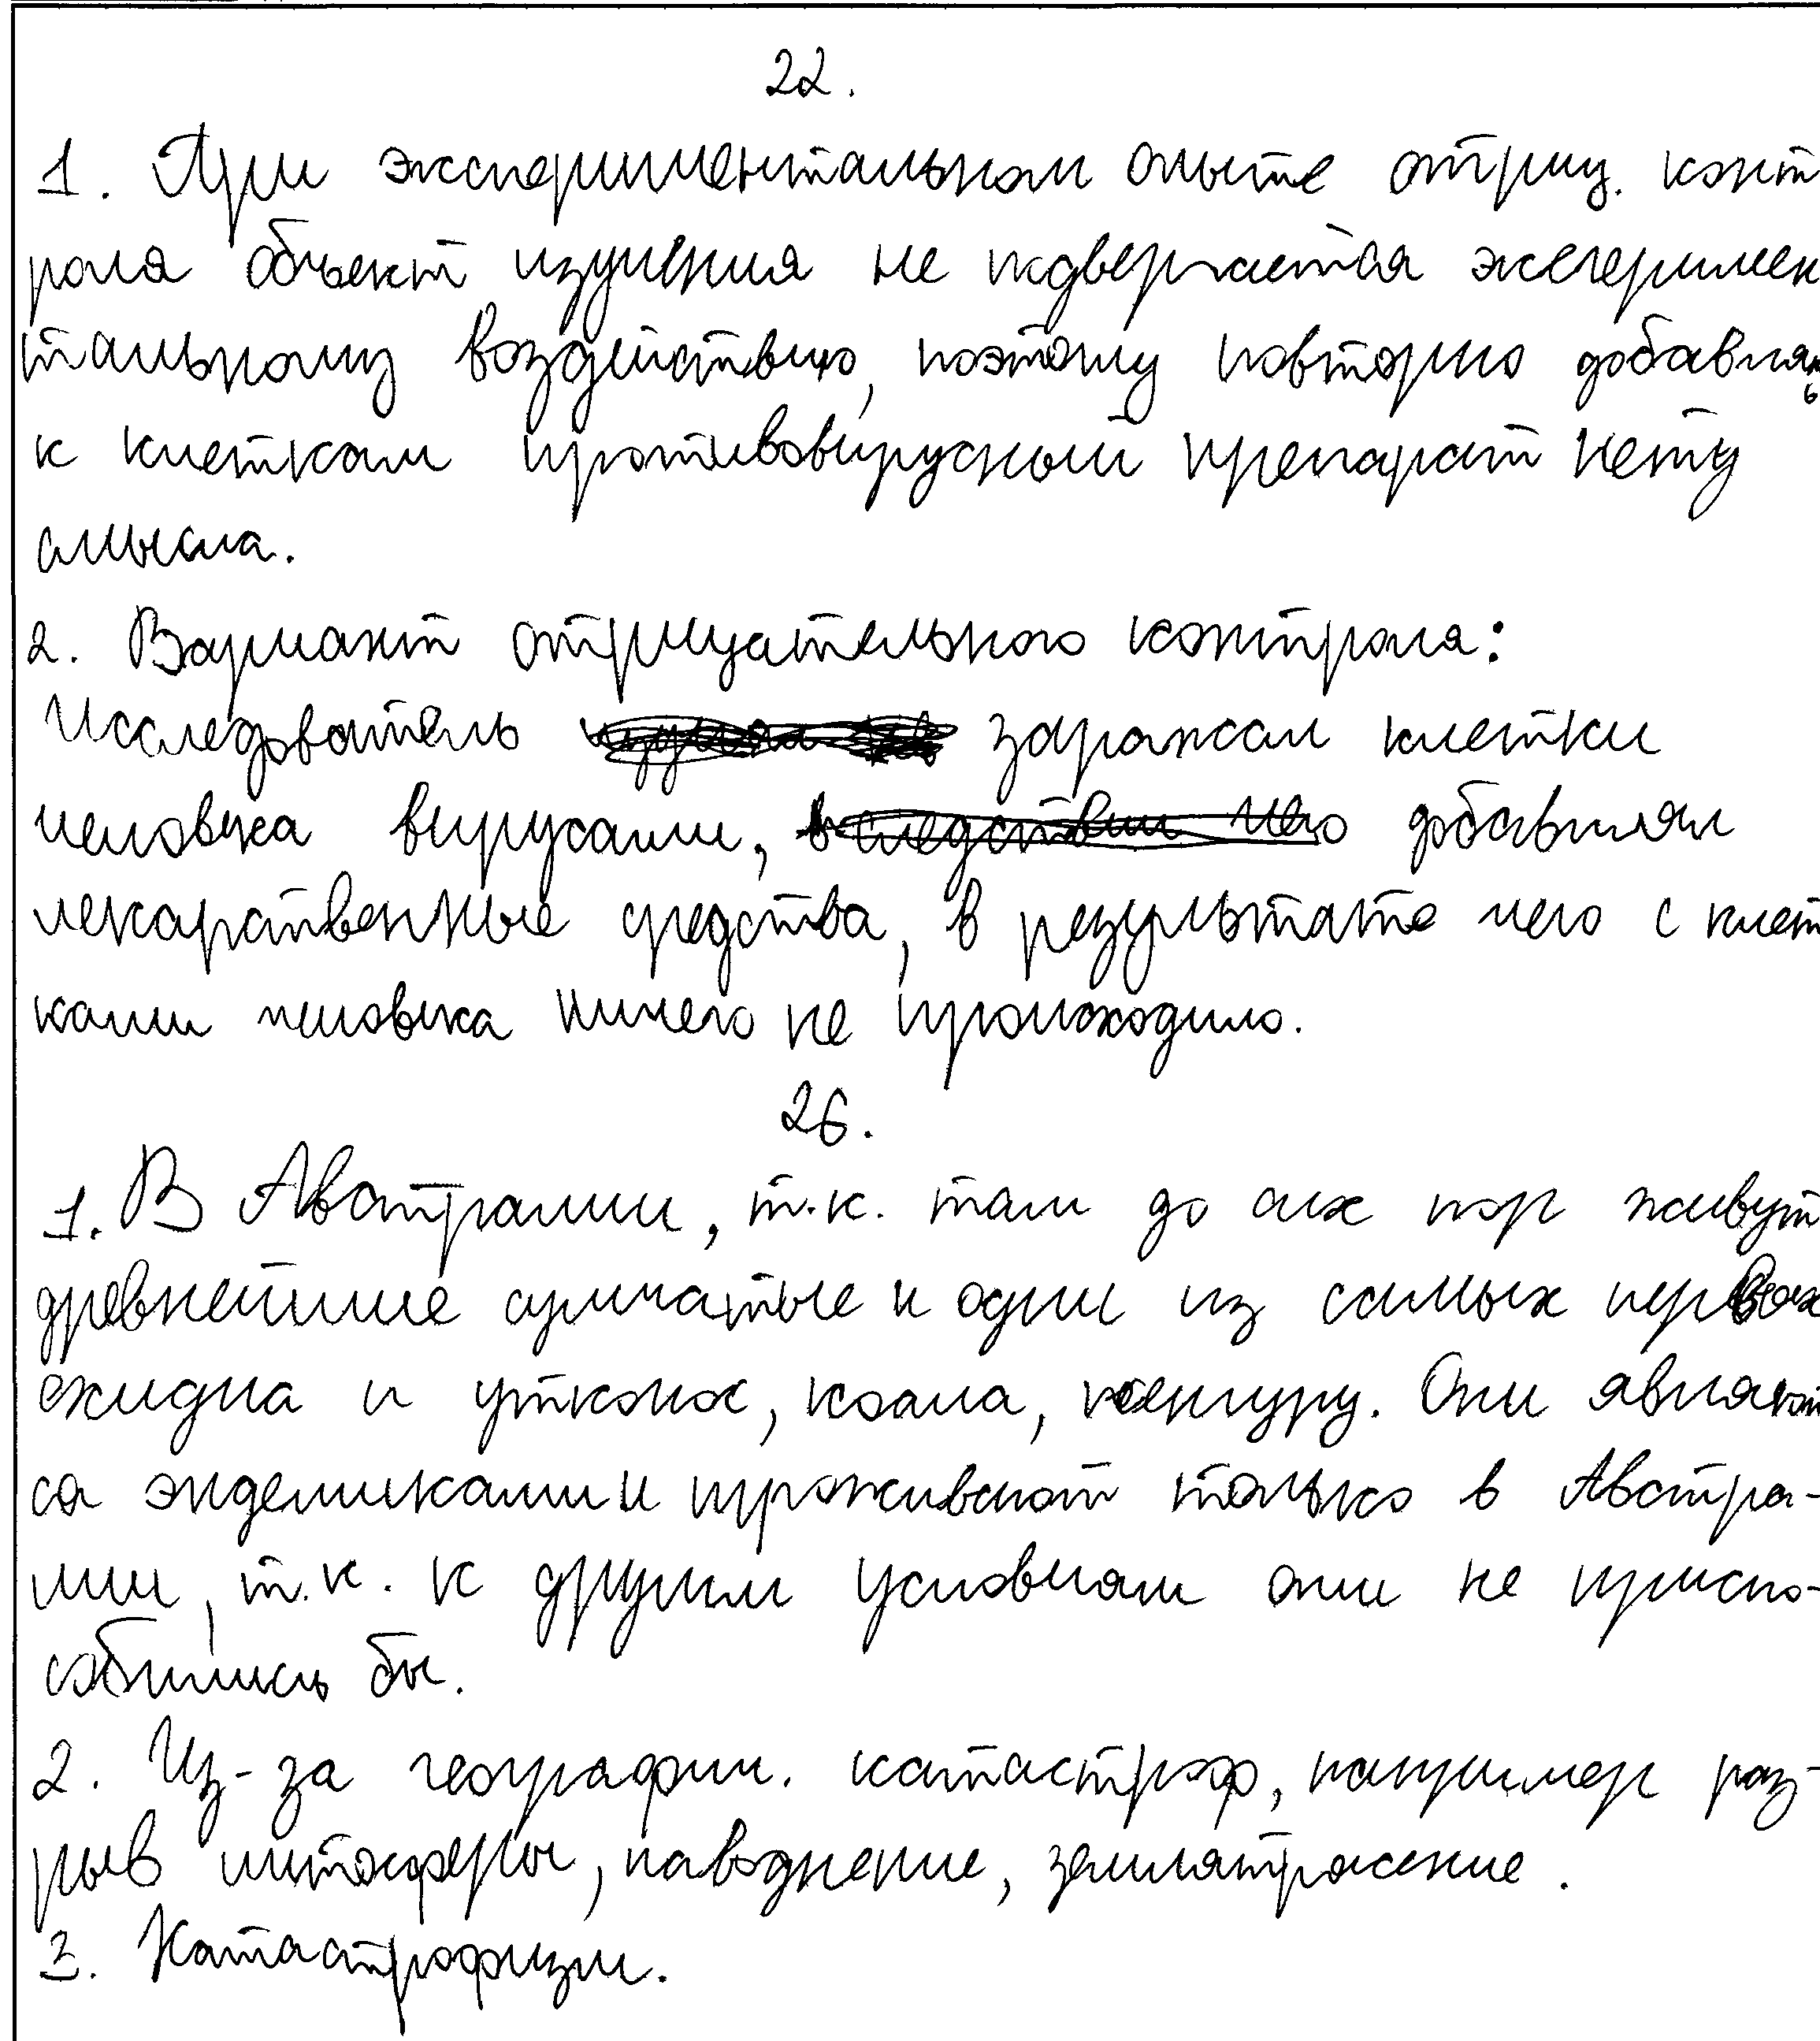 22.
1. При экспериментальном опыте отриц. конт
роля объект изучения не подвергается эксперимен
тальному воздействию, поэтому повторно добавлять
к клеткам противовирусный препарат нету
смысла.
2. Вариант отрицательного контроля:
Исследователь заражал клетки
человека вирусами, добавлял
лекарственные средства, в результате чего с клет
ками человека ничего не происходило.
26.
1. В Австралии, т.к. там до сих пор живут
древнейшие сумчатые и одни из самых первых
ехидна и утконос, коала, кенгуру. Они являют
ся эндемиками и проживают только в Австра-
лии, т.к. к другим условиям они не приспо-
собились бы.
2. Из-за географич. катастроф, например раз-
рыв литосферы, наводнение, землятрясение.
3. Катастрофизм.